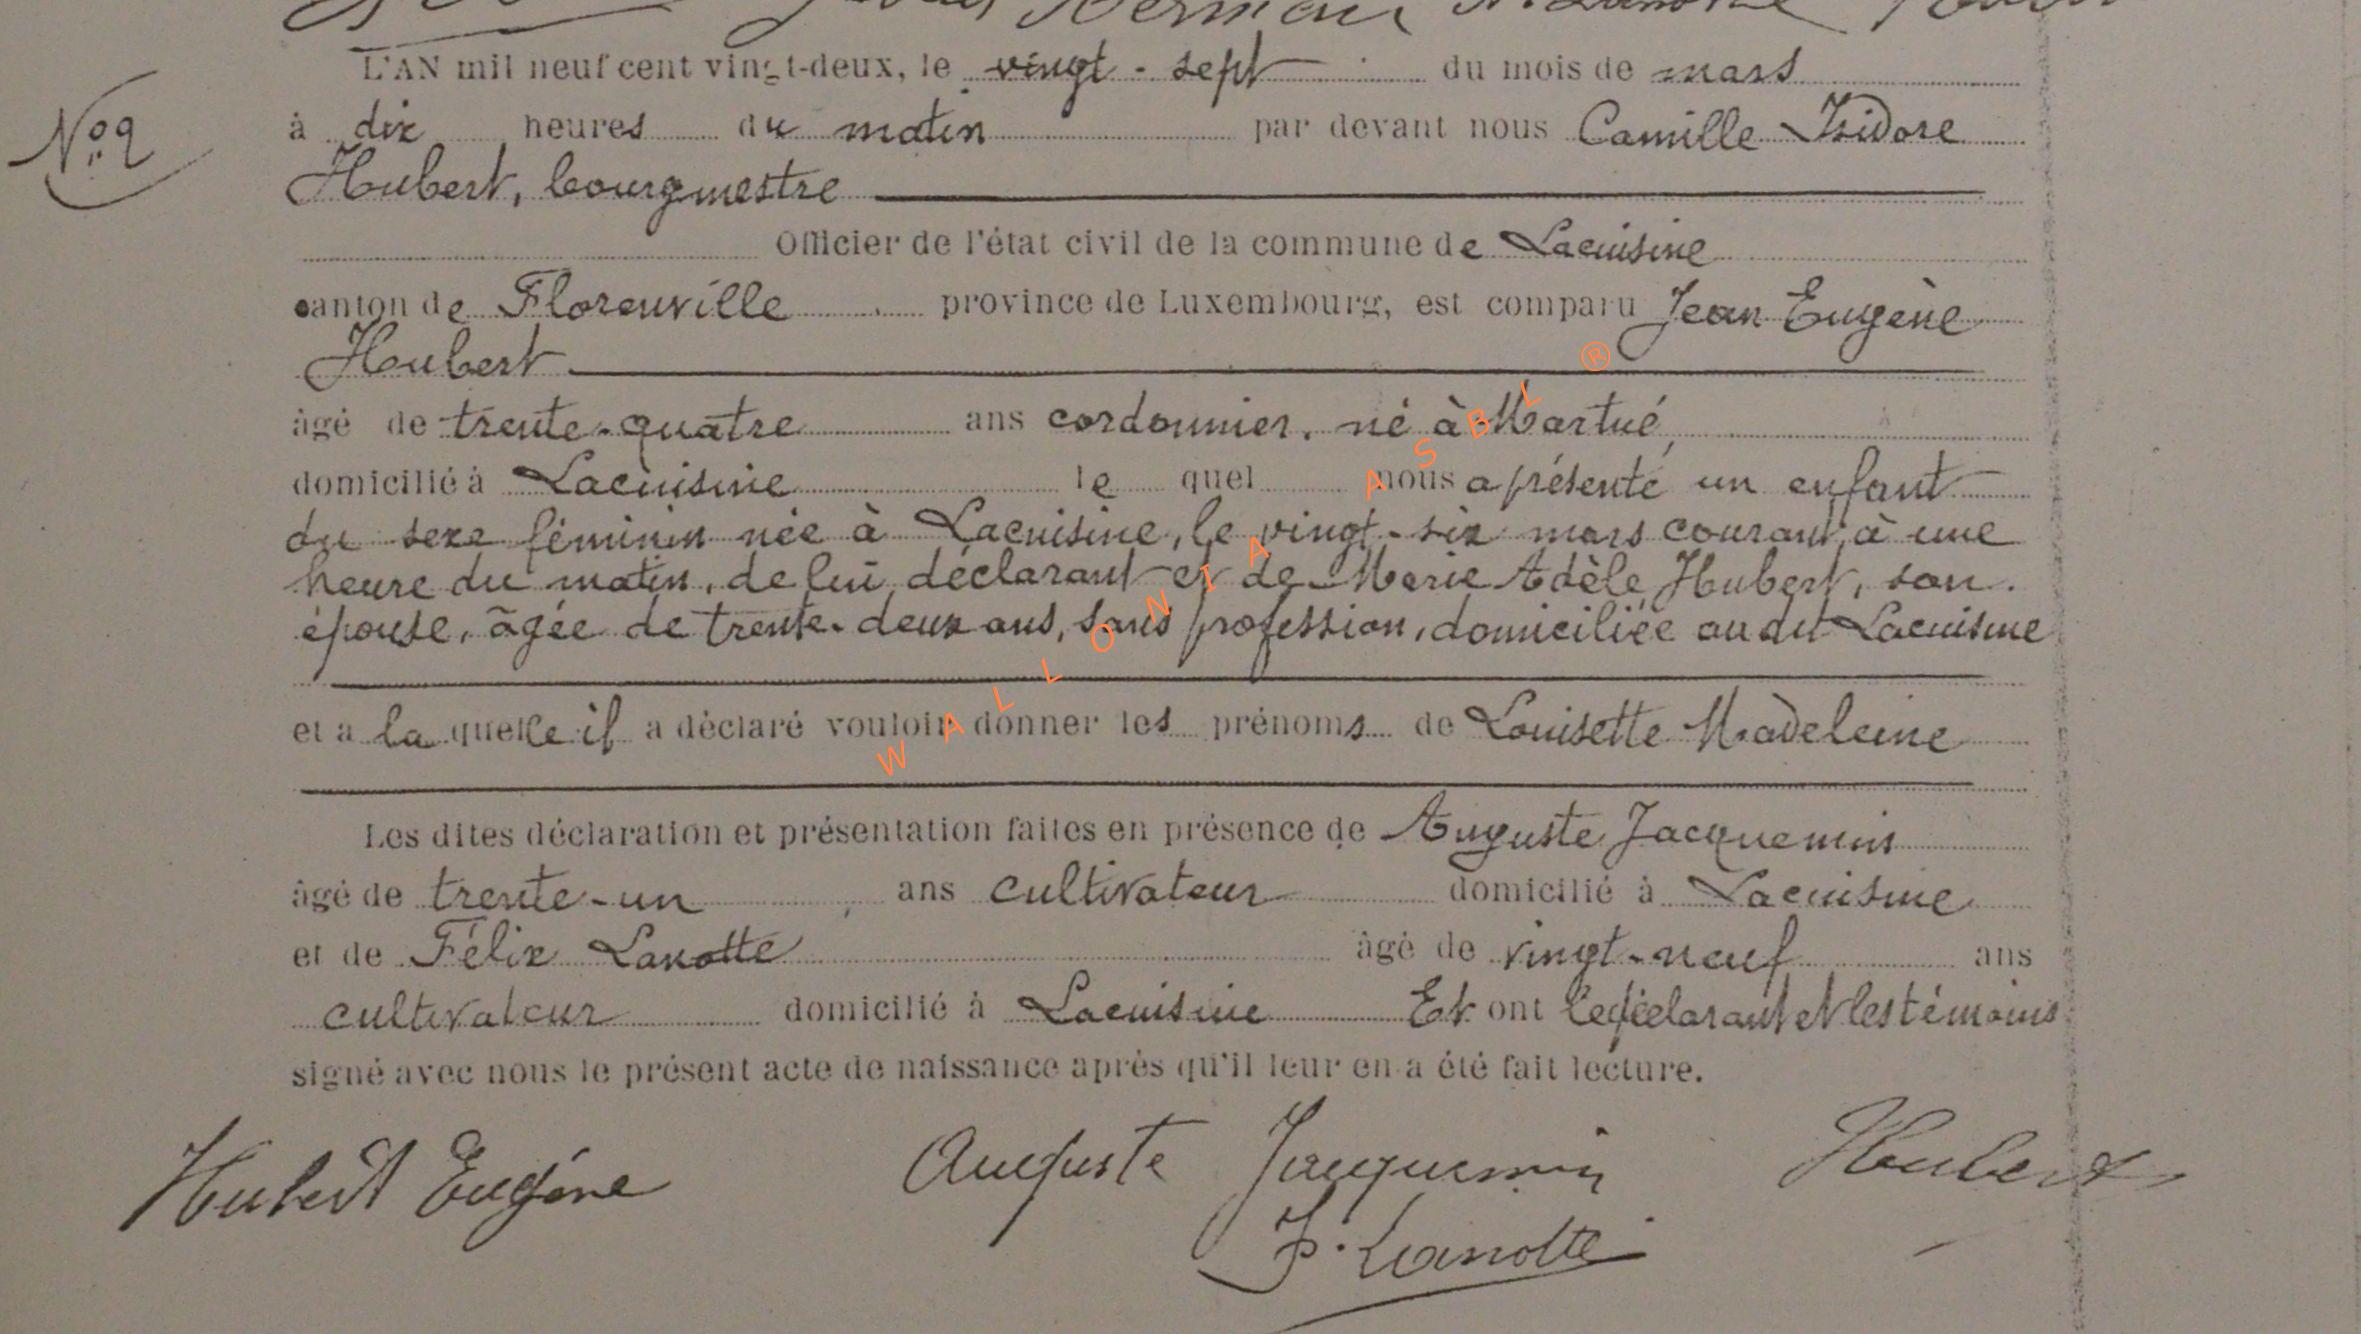 N° 9
L'AN mil neuf cent vingt-deux, le vingt-sept du mois de mars
à dix heures du matin par devant nous Camille Isidore
Hubert, bourgmestre
Officier de l'état civil de la commune de Lacuisine
canton de Florenville province de Luxembourg, est comparu Jean Eugène
Hubert
âgé de trente-quatre ans cordonnier, né à Martué,
domicilié à Lacuisine le quel nous a présenté un enfant
du sexe féminin née à Lacuisine, le vingt-six mars courant, à une
heure du matin, de lui déclarant et de Marie Adèle Hubert, son
épouse, âgée de trente-deux ans, sans profession, domiciliée audit Lacuisine
et a la quelle il a déclaré vouloir donner les prénoms de Louisette Madeleine
Les dites déclaration et présentation faites en présence de Auguste Jacquemin
âgé de trente-un ans cultivateur domicilié à Lacuisine
et de Félix Lanotte âgé de vingt-neuf ans
cultivateur domicilié à Lacuisine Et ont le déclarant et les témoins
signé avec nous le présent acte de naissance après qu'il leur en a été fait lecture.
Hubert Eugène Auguste Jacquemin Hubert
F. Lanotte
WALLONIA ASBL ®